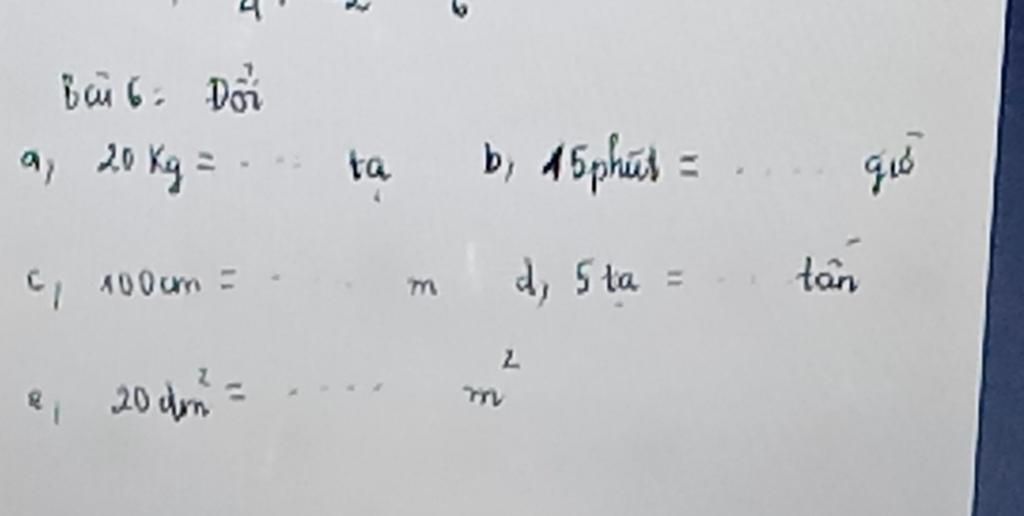 Bài 6: Đổi
a, 20 Kg = ... tạ b, 15phút = .... giờ
c, 100cm = .. m d, 5 tạ = .. tấn
e, 20 dm² = ..... m²